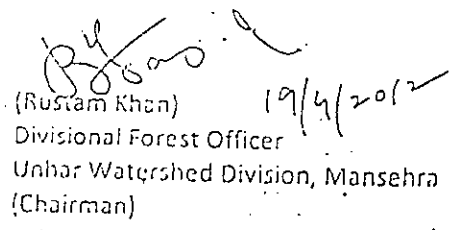 (Rustam Khan)
19/4/2012
Divisional Forest Officer
Unhar Watershed Division, Mansehra
(Chairman)